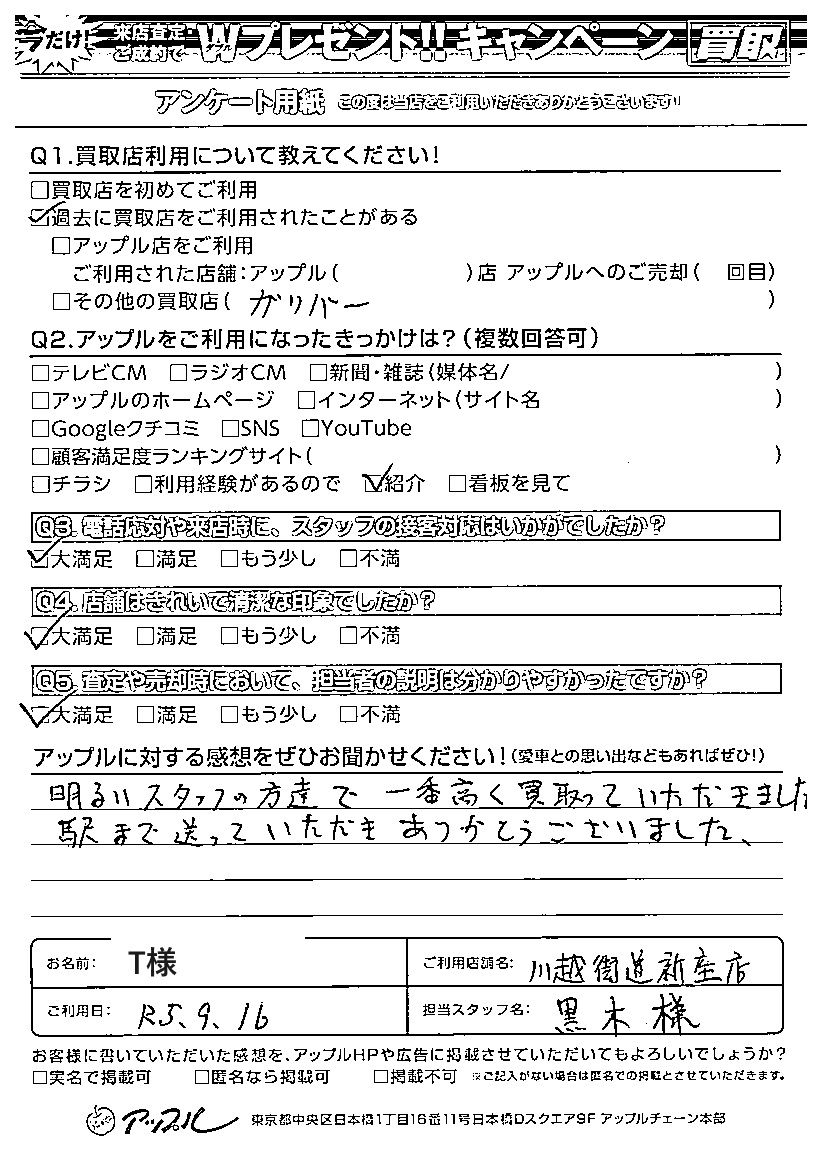 今だけ! 来店査定・ご成約で Wダブルプレゼント!! キャンペーン 買取
アンケート用紙 この度は当店をご利用いただきありがとうございます!!
Q1.買取店利用について教えてください!
□買取店を初めてご利用
☑過去に買取店をご利用されたことがある
□アップル店をご利用
ご利用された店舗:アップル( )店 アップルへのご売却( 回目)
□その他の買取店( ガリバー )
Q2.アップルをご利用になったきっかけは?(複数回答可)
□テレビCM □ラジオCM □新聞・雑誌(媒体名/ )
□アップルのホームページ □インターネット(サイト名 )
□Googleクチコミ □SNS □YouTube
□顧客満足度ランキングサイト( )
□チラシ □利用経験があるので ☑紹介 □看板を見て
Q3.電話応対や来店時に、スタッフの接客対応はいかがでしたか?
☑大満足 □満足 □もう少し □不満
Q4.店舗はきれいで清潔な印象でしたか?
☑大満足 □満足 □もう少し □不満
Q5.査定や売却時において、担当者の説明は分かりやすかったですか?
☑大満足 □満足 □もう少し □不満
アップルに対する感想をぜひお聞かせください!(愛車との思い出などもあればぜひ!)
明るいスタッフの方達で 一番高く買取っていただきました
駅まで送っていただき ありがとうございました、
お名前: T様 ご利用店舗名: 川越街道新座店
ご利用日: R5.9.16 担当スタッフ名: 黒木様
お客様に書いていただいた感想を、アップルHPや広告に掲載させていただいてもよろしいでしょうか?
□実名で掲載可 □匿名なら掲載可 □掲載不可 ※ご記入がない場合は匿名での掲載とさせていただきます。
アップル 東京都中央区日本橋1丁目16番11号日本橋Dスクエア9F アップルチェーン本部